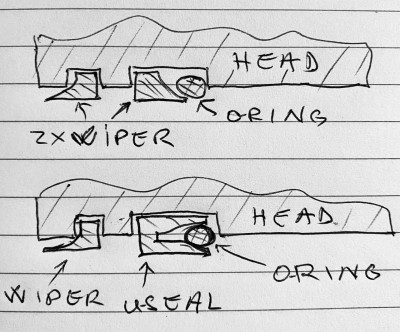 HEAD
ORING
2x WIPER
HEAD
ORING
WIPER
USEAL